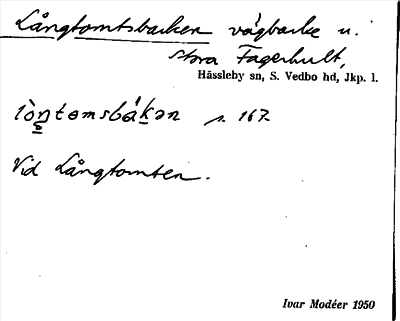 Långtomtsbacken vägbacke u.
Stora Fagerhult,
Hässleby sn, S. Vedbo hd, Jkp. l.
s. 167
Vid Långtomten.
Ivar Modéer 1950